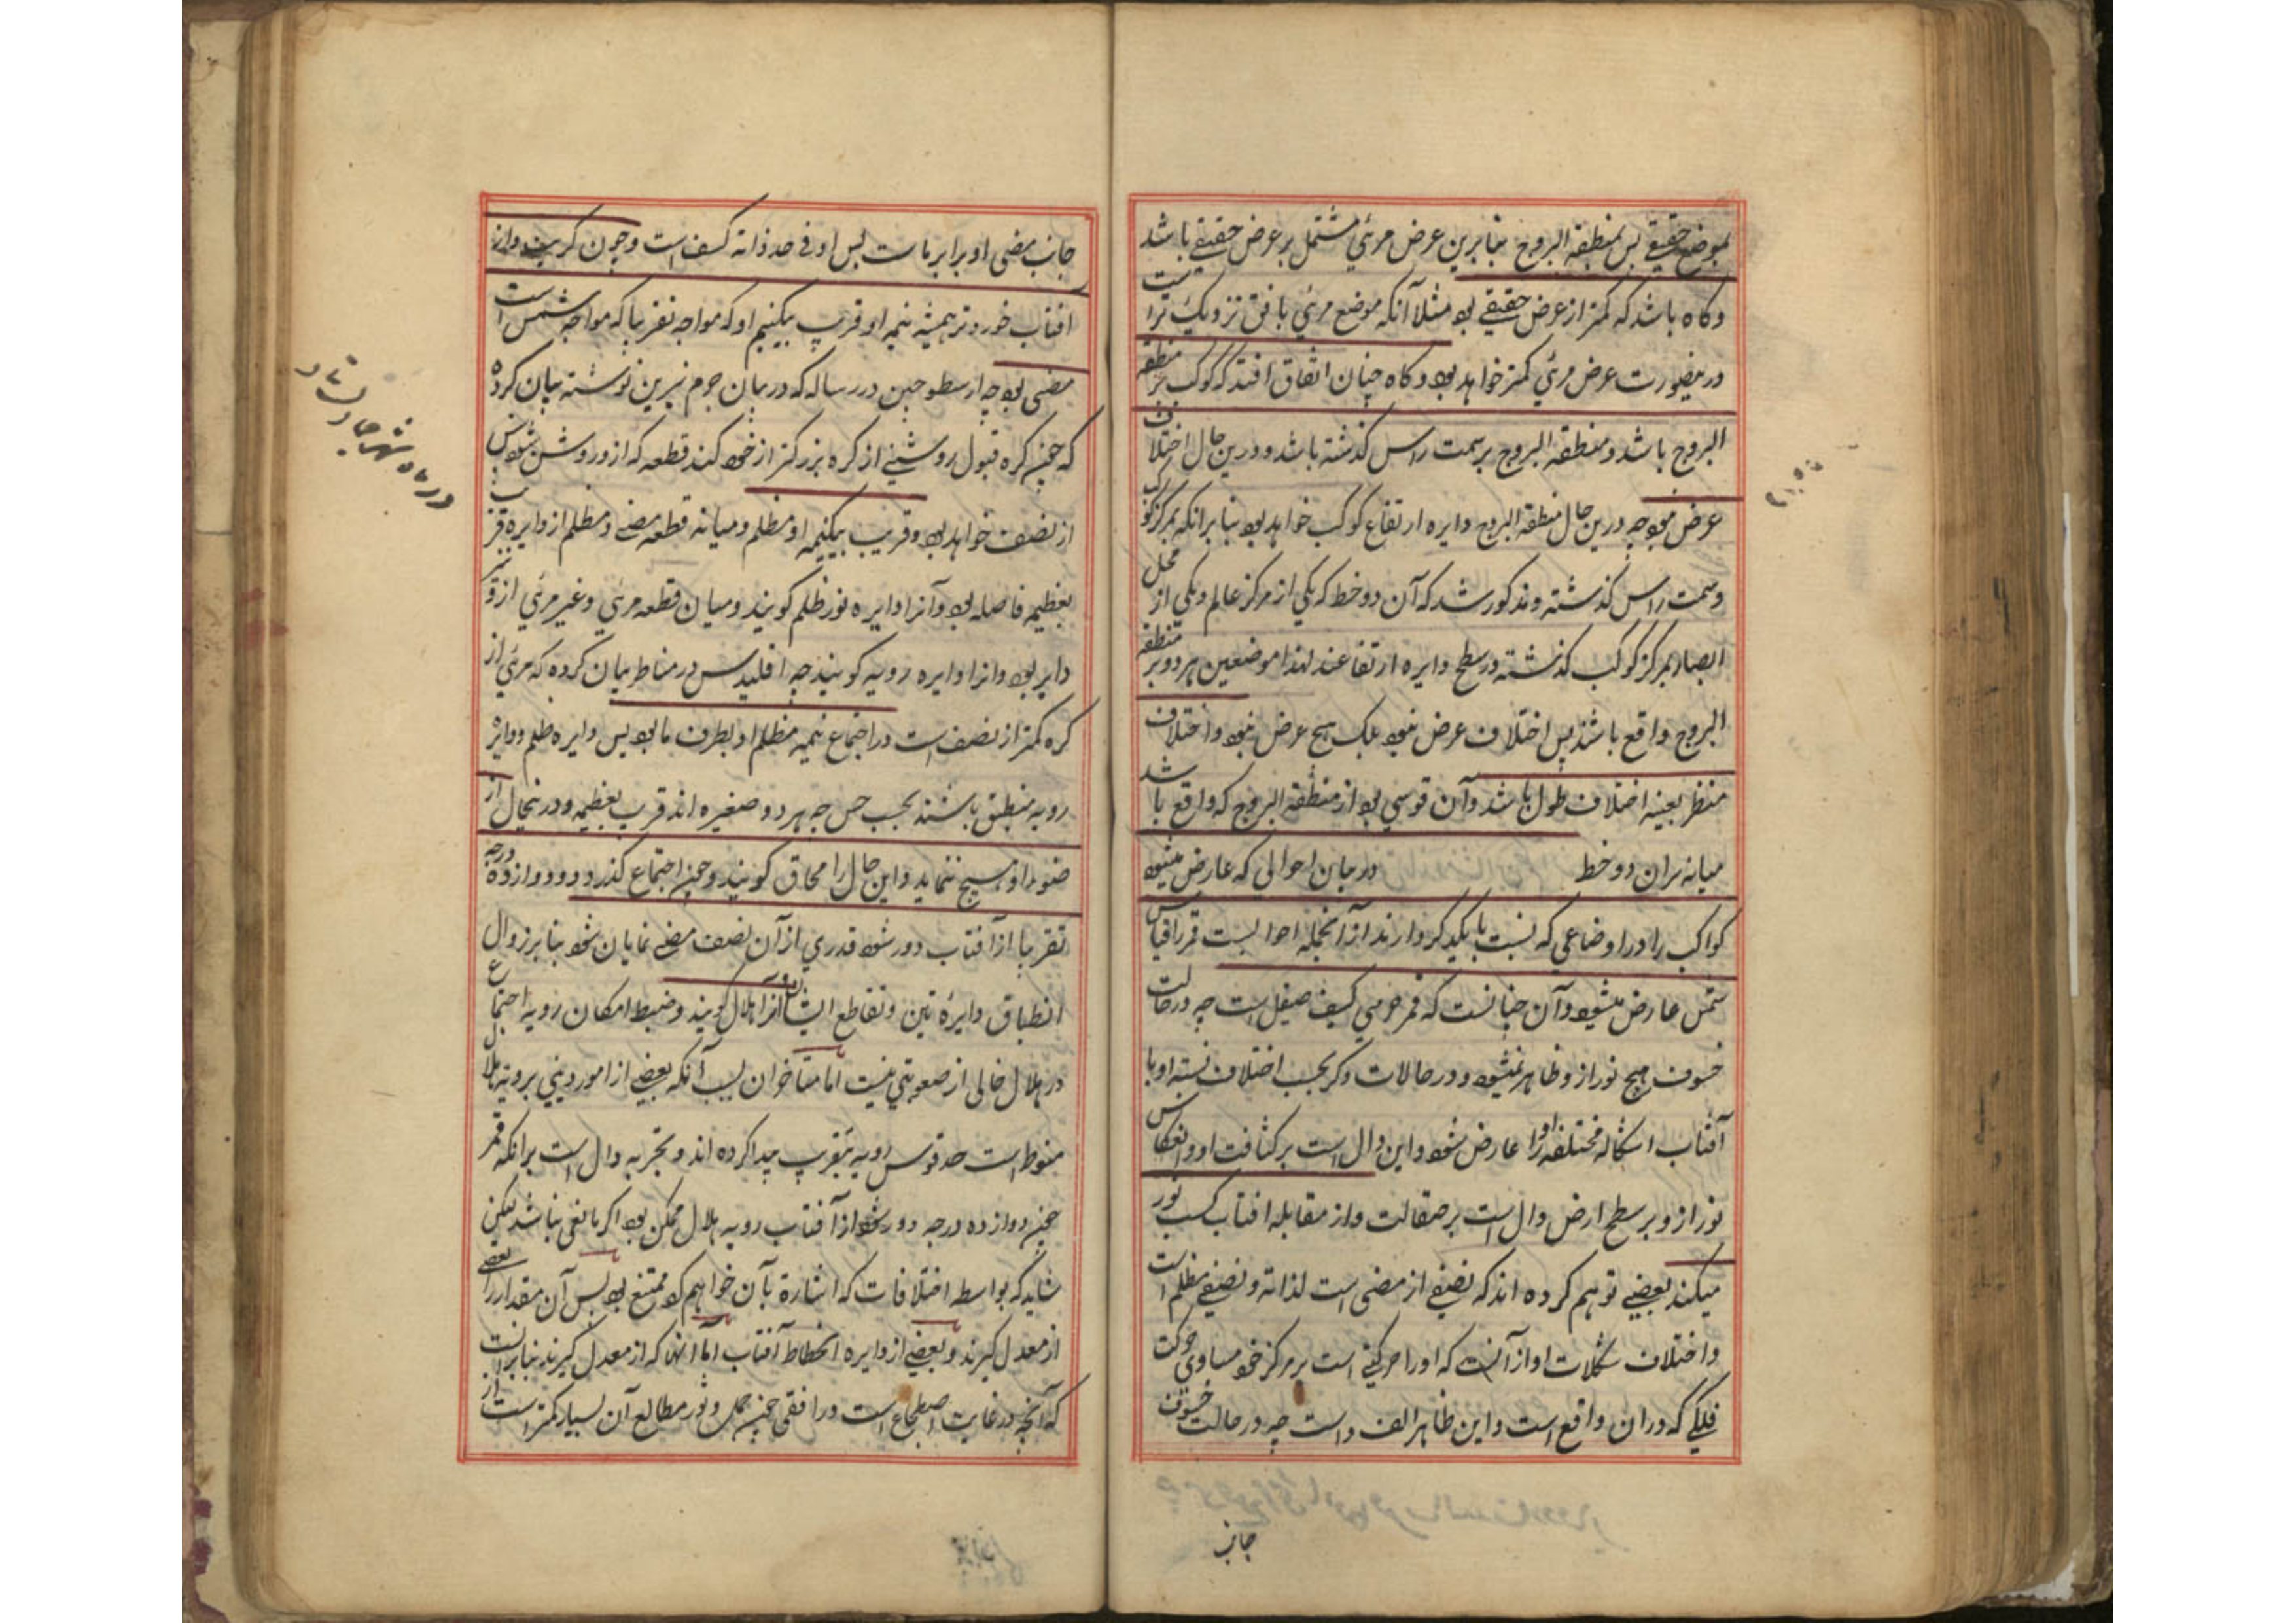 بموضع حقیقے بس بمنطقة البروج بنابرین عرض مرئي مشتمل بر عرض حقیقے باشد
وکاه باشد که کمتر از عرض حقیقے بود مثلا آنکه موضع مرئي بافق نزدیک تراست
درینصورت عرض مرئي کمتر خواهد بود وکاه چنان اتفاق افتد که کوکب بر منطقه
البروج باشد ومنطقة البروج بر سمت راس کذشته باشد ودرین حال اختلاف
عرض نبود چه درین حال منطقة البروج دایره ارتفاع کوکب خواهد بود بنابرانکه بمرکز کوکب
وسمت راس کذشته ومذکور شد که آن دو خط که یکي از مرکز عالم ویکي از محل
ابصار بمرکز کوکب کذشته در سطح دایره ارتفاعند لهذا موضعین هر دو بر منطقه
البروج واقع باشند پس اختلاف عرض نبود بلکه هیچ عرض نبود واختلاف
منظر بعینه اختلاف طول باشد وآن قوسي بود از منطقة البروج که واقع باشد
میانه سران دو خط در بیان احوالی که عارض میشود
کواکب را در اوضاعي که نسبت بایکدیکر دارند از آنجمله احوالیست قمر را قیاس
شمس عارض میشود وآن چنانست که قمر جرمي کثیف صیقل است چه در حالت
خسوف هیچ نور از و ظاهر نمیشود ودر حالات دکر بحسب اختلاف نسبة او با
آفتاب اشکاله مختلفه او را عارض شود واین دال است بر کثافت او وانعکاس
نور از و بر سطح ارض دال است بر صقالت واز مقابله افتاب کسب نور
میکند بعضیے توهم کرده اند که نصفے از مضی است لذاته ونصفے مظلم است
واختلاف تشکلات او از آنست که او را حرکتے است بر مرکز خود مساوي حرکت
فلکے که دران واقع است واین ظاهر الفساد است چه در حالت خسوف
جانب
جانب مضی او برابر ماست پس او فی حد ذاته کسف است وچون کریست واز
افتاب خوردتر همیشه نیمه او قریب بیکنیم او که مواجه تقریبا که مواجه شمس است
مضی بود چه ارسطوخس در رساله که در بیان جرم نیرین نوشته بیان کرده
که چون کره قبول روشنے از کره بزرکتر از خود کند قطعه که از و روشن شود بیش
از نصف خواهد بود وقریب بیکنیمه او مظلم ومیانه قطعه مضے ومظلم از دایره قریب
بعظیمه فاصله بود وآنرا دایره نور ظلم کویند ومیان قطعه مرئي وغیر مرئي از و نیز
دایر بود وانرا دایره رویه کویند چه اقلیدس در مناظر بیان کرده که مرئي از
کره کمتر از نصف است در اجتماع نیمه مظلم او بطرف ما بود پس دایره ظلم ودایره
رویه منطبق باشند بحسب حس چه هر دو صغیره اند قریب بعظیمه ودر ینحال از
ضوء او هیچ ننماید واین حال را محاق کویند وچون اجتماع کذرد ودوازده درجه
تقریبا از آفتاب دور شود قدري از آن نصف مضے نمایان شود بنابر زوال
انطباق دایرتین وتقاطع ایشان وآنرا هلال کویند وضبط امکان رویه اجتماع
در هلال خالی از صعوبتي نیست اما متاخران بسبب آنکه بعضیے از امور دیني برویة هلال
منوط است حد قوس رویه بتقریب پیدا کرده اند وتجربه دال است برانکه قمر
چون دوازده درجه دور شود از آفتاب رویه هلال ممکن بود اکر مانعی نباشد لیکن
شاید که بواسطه اختلافات که اشارة بآن خواهیم کرد ممتنع بود پس آن مقدار را بعضے
از معدل کیرند وبعضیے از دایره انحطاط آفتاب اما آنها که از معدل کیرند بنابرانست
که آنچه در غایت اضطجاع است در افقی چون حمل وثور مطالع آن بسیار کمتر است از